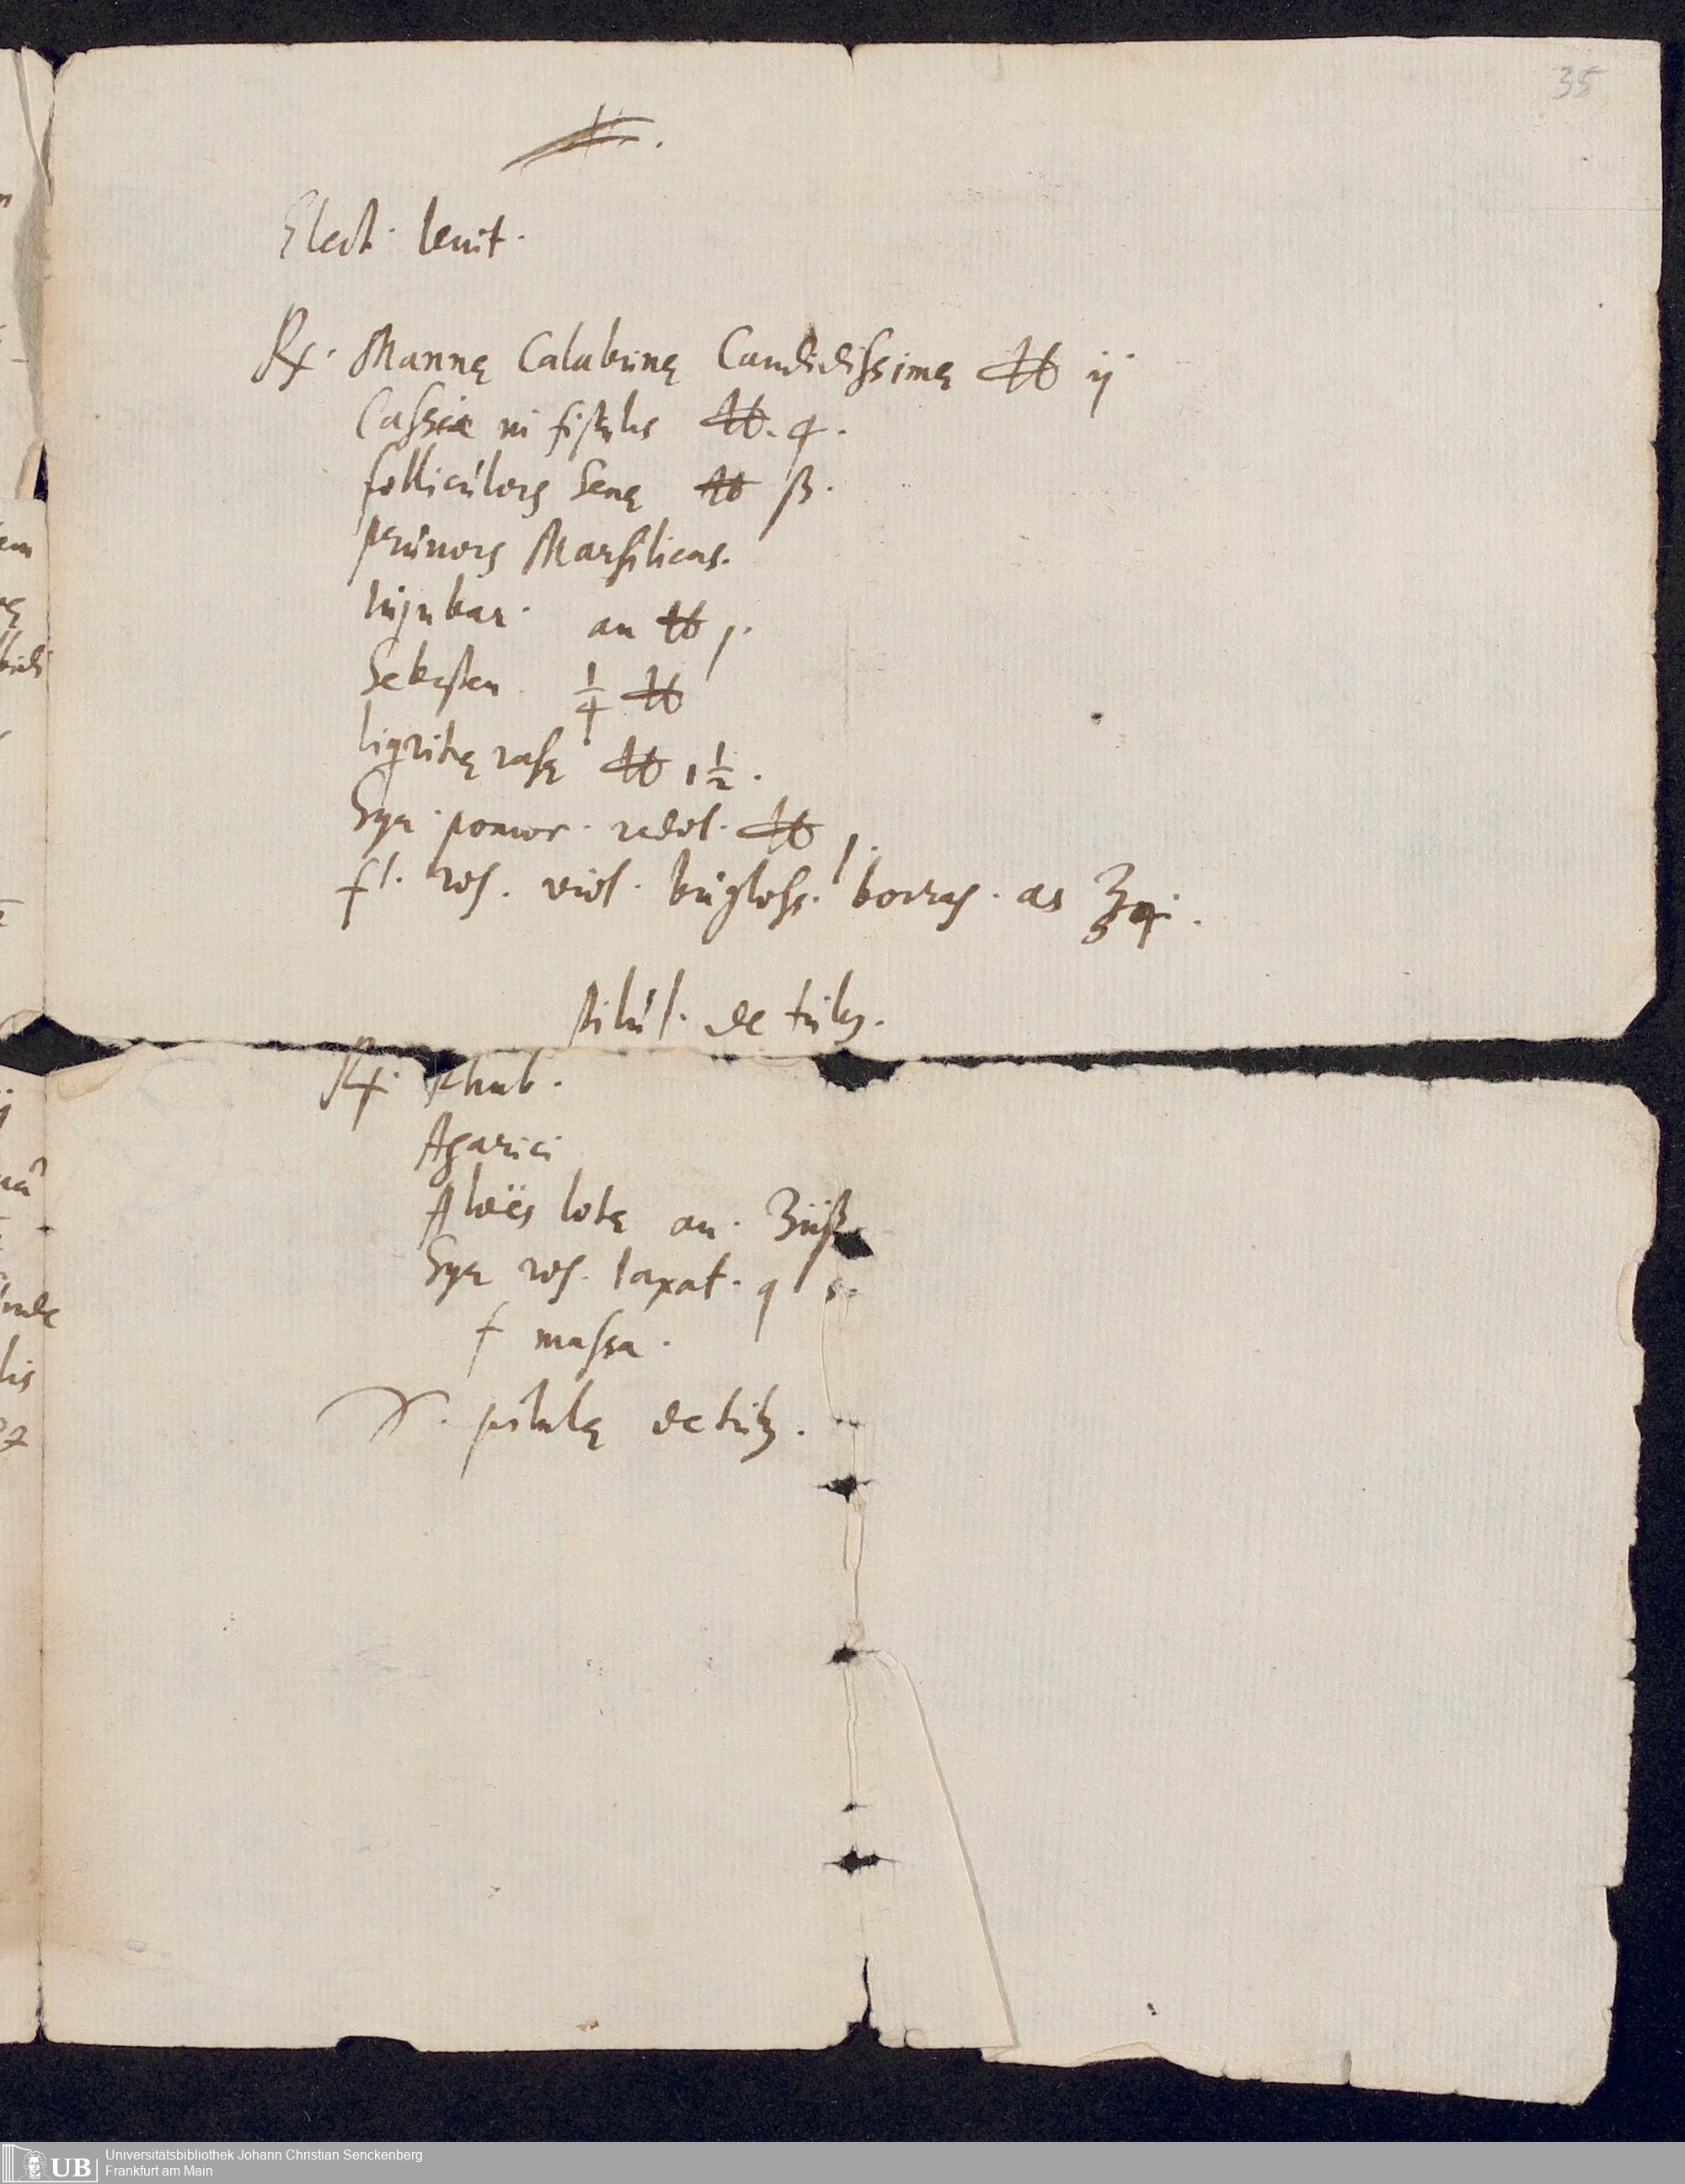 35
Elect. lenit.
Rx. Mannę Calabrinę Candidissimę ℔ ij
Cassiæ in fistulis ℔. 4.
folliculorꝫ Senę ℔ ß.
prunorꝫ Marsilicas.
Iujubar. an ℔ j.
Sebesten ¼ ℔
liqritię rasę ℔ 1½.
Syr. pomor. redol. ℔ j.
fl. ros. viol. bugloss. borrag. as ʒ 4.
Pilul. de trib.
Rx. Rhab.
Agarici
Aloës lotę an. ʒiijß
Syr ros. laxat. q s.
f massa.
pilulę de trib.
UB
Universitätsbibliothek Johann Christian Senckenberg
Frankfurt am Main